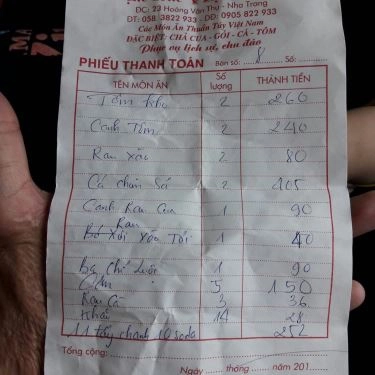 ĐC: 23 Hoàng Văn Thụ - Nha Trang
ĐT: 058 3822 933 - DĐ: 0905 822 933
Các Món Ăn Thuần Túy Việt Nam
ĐẶC BIỆT: CHẢ CUA - GỎI - CÁ - TÔM
Phục vụ lịch sự, chu đáo
PHIẾU THANH TOÁN Bàn số: 8 Số:
TÊN MÓN ĂN Số lượng THÀNH TIỀN
Tôm kho 2 260
Canh Tôm 2 240
Rau Xào 2 80
Cá chim Sả 2 405
Canh Rau Cua 1 90
Rau
Bó Xôi Xào Tỏi 1 40
ba chỉ luộc 1 90
Cơm 5 150
Rau Cà 3 36
Khăn 14 28
11 tây chanh 10 soda 252
Tổng cộng:
Ngày tháng năm 201